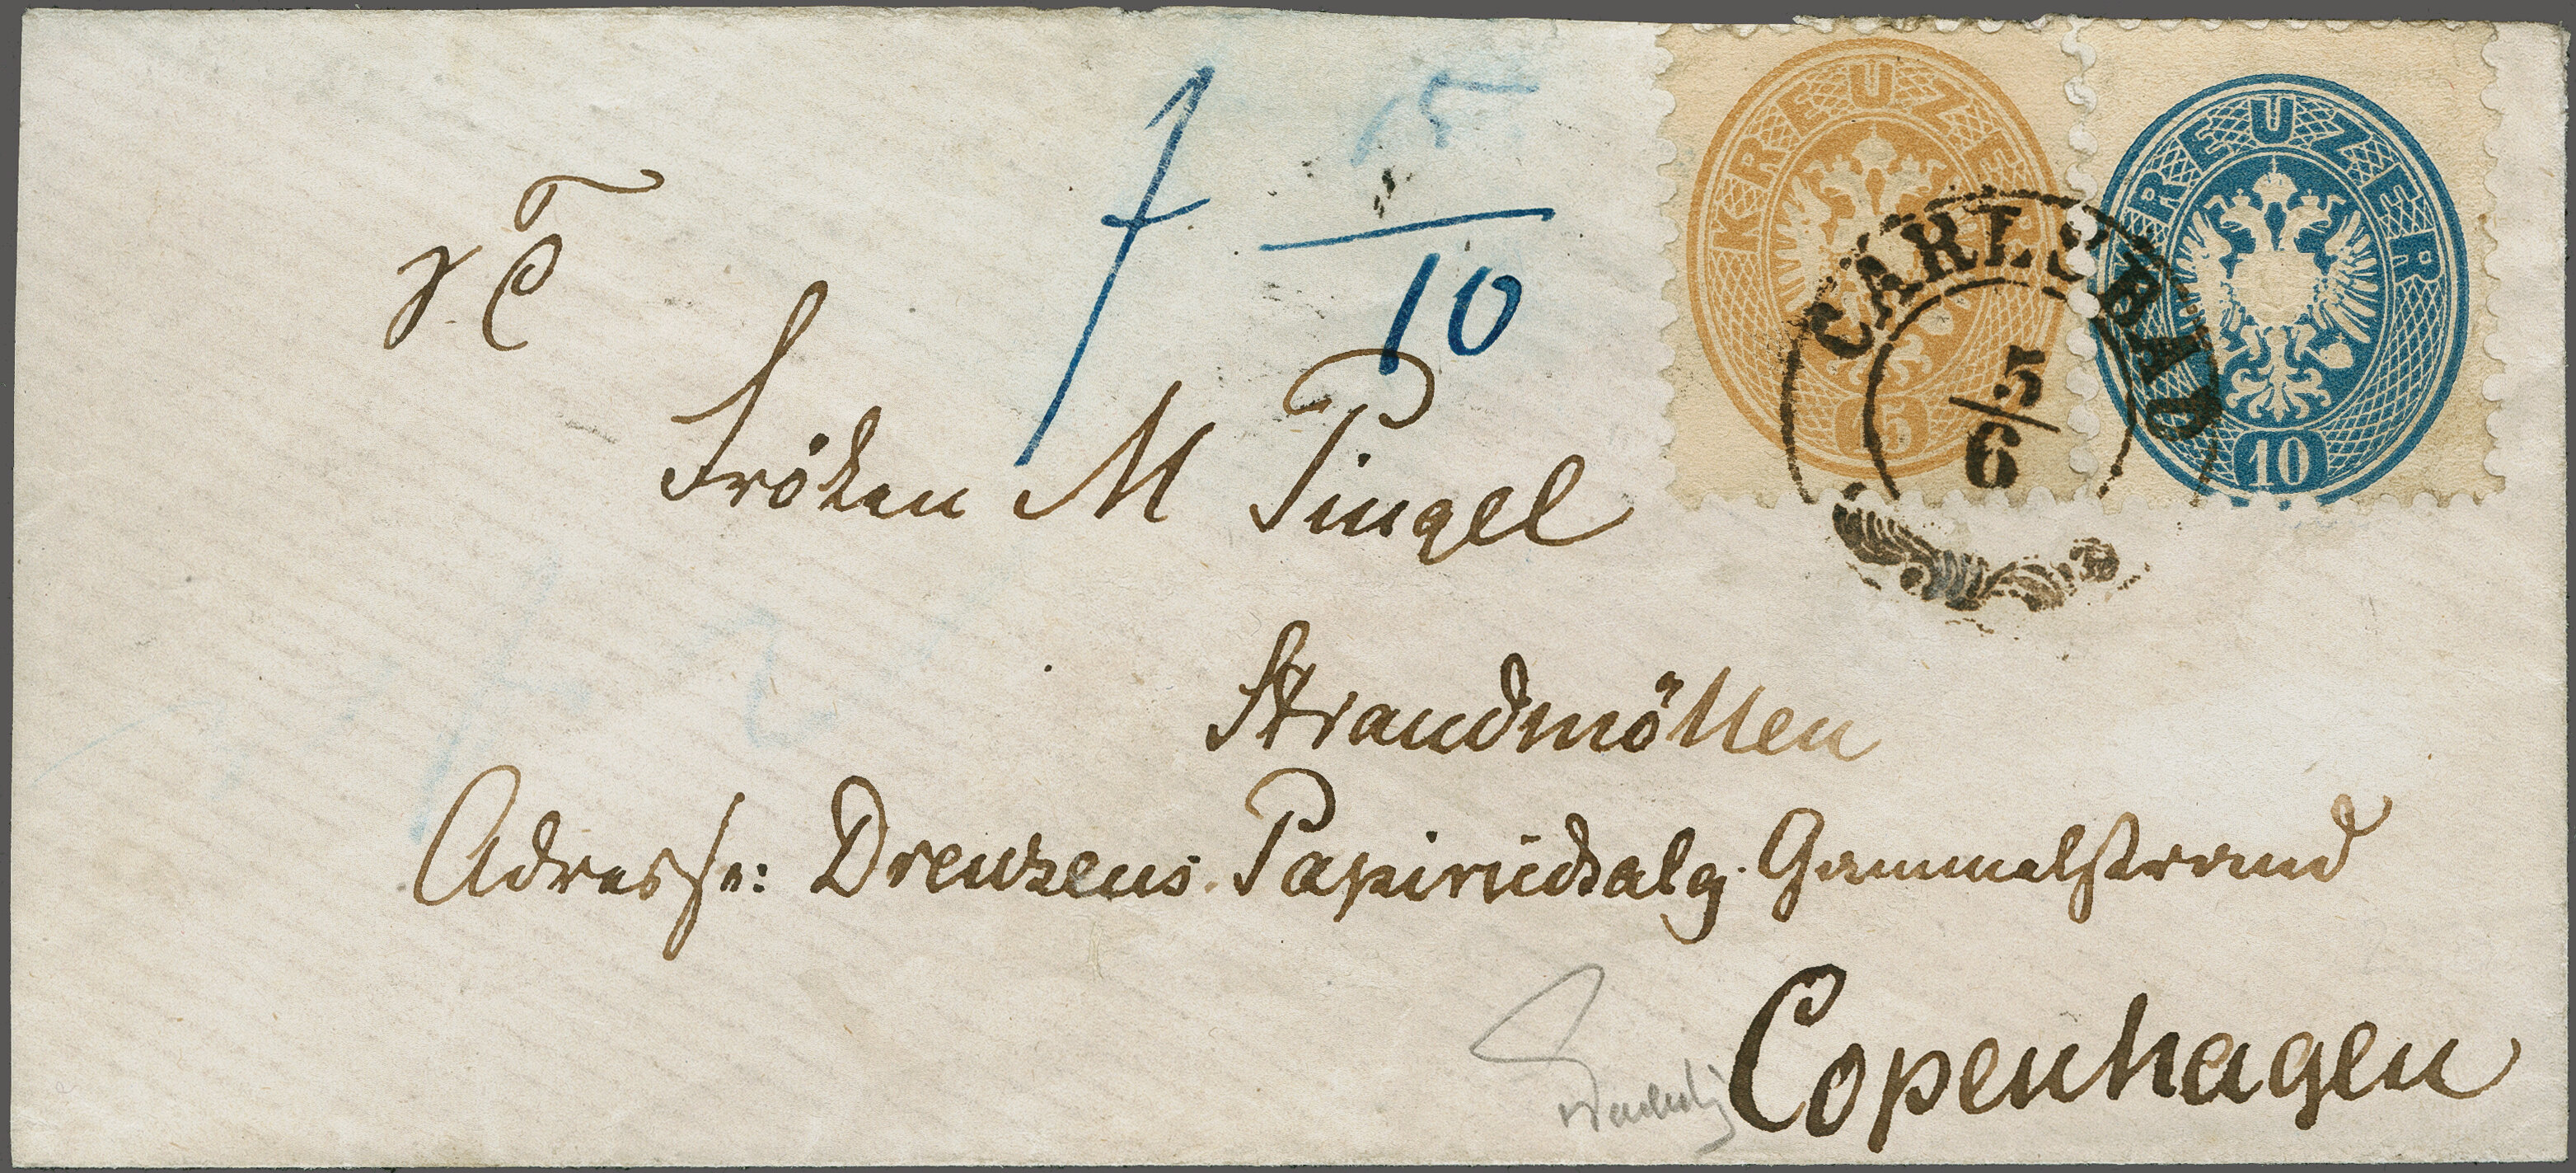 KREUZER
15
KREUZER
10
CARLSBAD
5/6
7
15
10
Fröken M Pingel
Strandmöllen
Adresse: Drewsens Papirüdsalg. Gammelstrand
Copenhagen